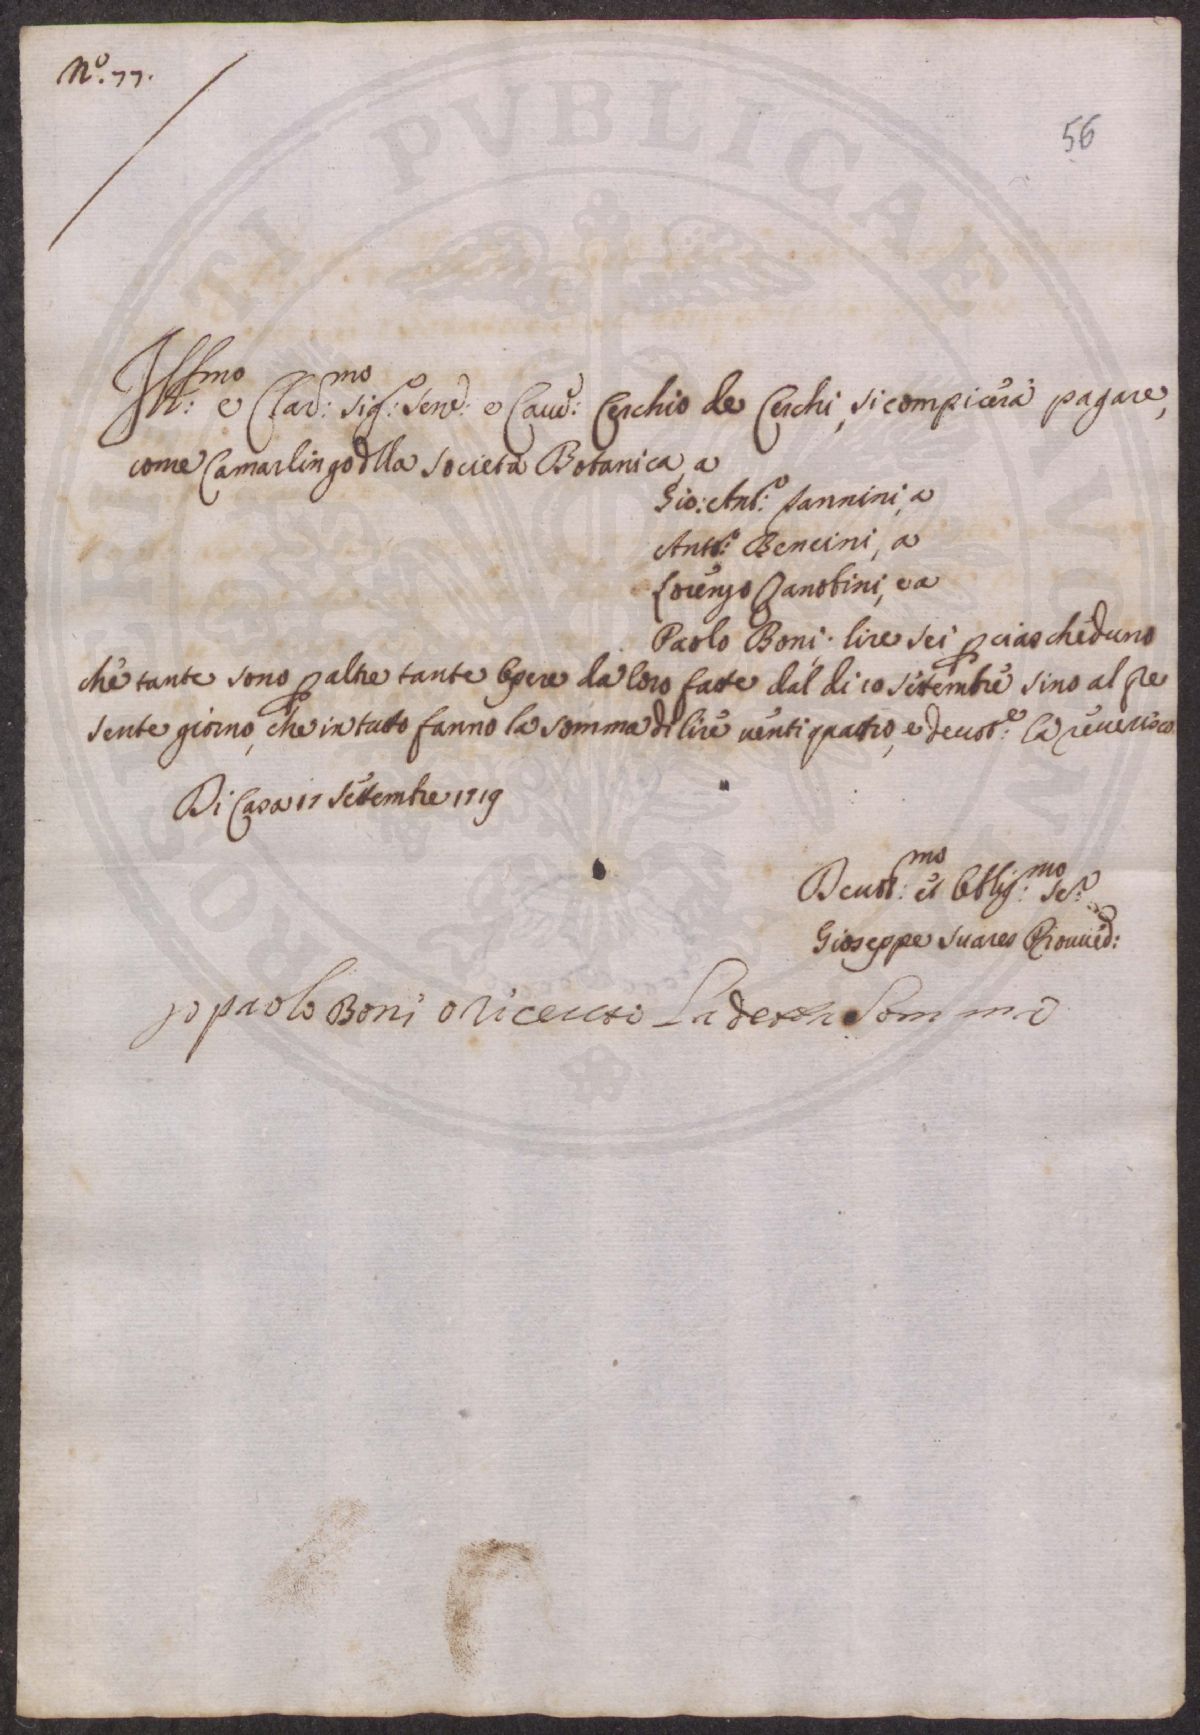 N.º 77.
56
Ill:mo e Clar:mo Sig:e Sen:e e Cau:e Cerchio de Cerchi, si compicerà pagare,
come Camarlingo dlla Società Botanica, a
Gio: Ant:o Nannini, a
Ant:o Bencini, a
Lorenzo Zanobini, e a
Paolo Boni. lire sei p ciascheduno
che tante sono p altre tante Opere da loro fatte dal di 10 Settembre sino al pre
sente giorno, che in tutto fanno la somma di lire uenti quattro, e deuot:e la reuerisco.
Di Casa 17 Settembre 1719
Deuot:mo et Obblig:mo Se:e
Gioseppe Suares Prouued:
jo paolo Boni o riceuto La detta Somma